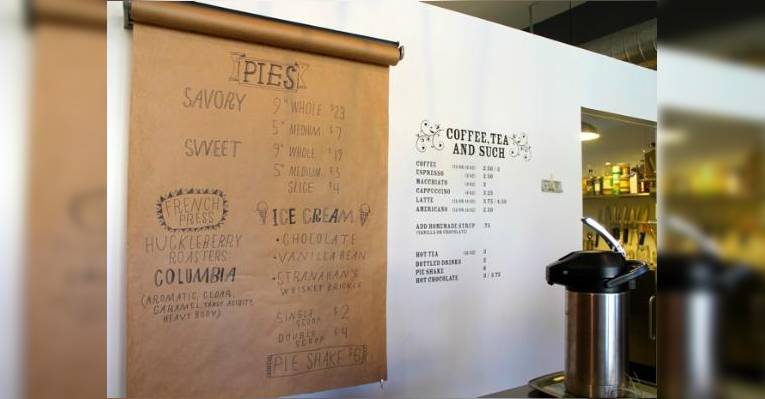 PIES
SAVORY 9" WHOLE $23
5" MEDIUM $7
SWEET 9" WHOLE $19
5" MEDIUM $5
SLICE $4
FRENCH
PRESS
HUCKLEBERRY
ROASTERS
COLUMBIA
(AROMATIC, CEDAR,
CARAMEL, TANGY ACIDITY,
HEAVY BODY)
ICE CREAM
• CHOCOLATE
• VANILLA BEAN
• STRANAHAN'S
WHISKEY BRICKLE
SINGLE
SCOOP $2
DOUBLE
SCOOP $4
PIE SHAKE $6
COFFEE, TEA
AND SUCH
COFFEE 2.50 / 3
ESPRESSO 2.50
MACCHIATO 3
CAPPUCCINO 3.25
LATTE 3.75 / 4.50
AMERICANO 2.50
ADD HOMEMADE SYRUP .75
(VANILLA OR CHOCOLATE)
HOT TEA 3
BOTTLED DRINKS 2
PIE SHAKE 6
HOT CHOCOLATE 3 / 3.75